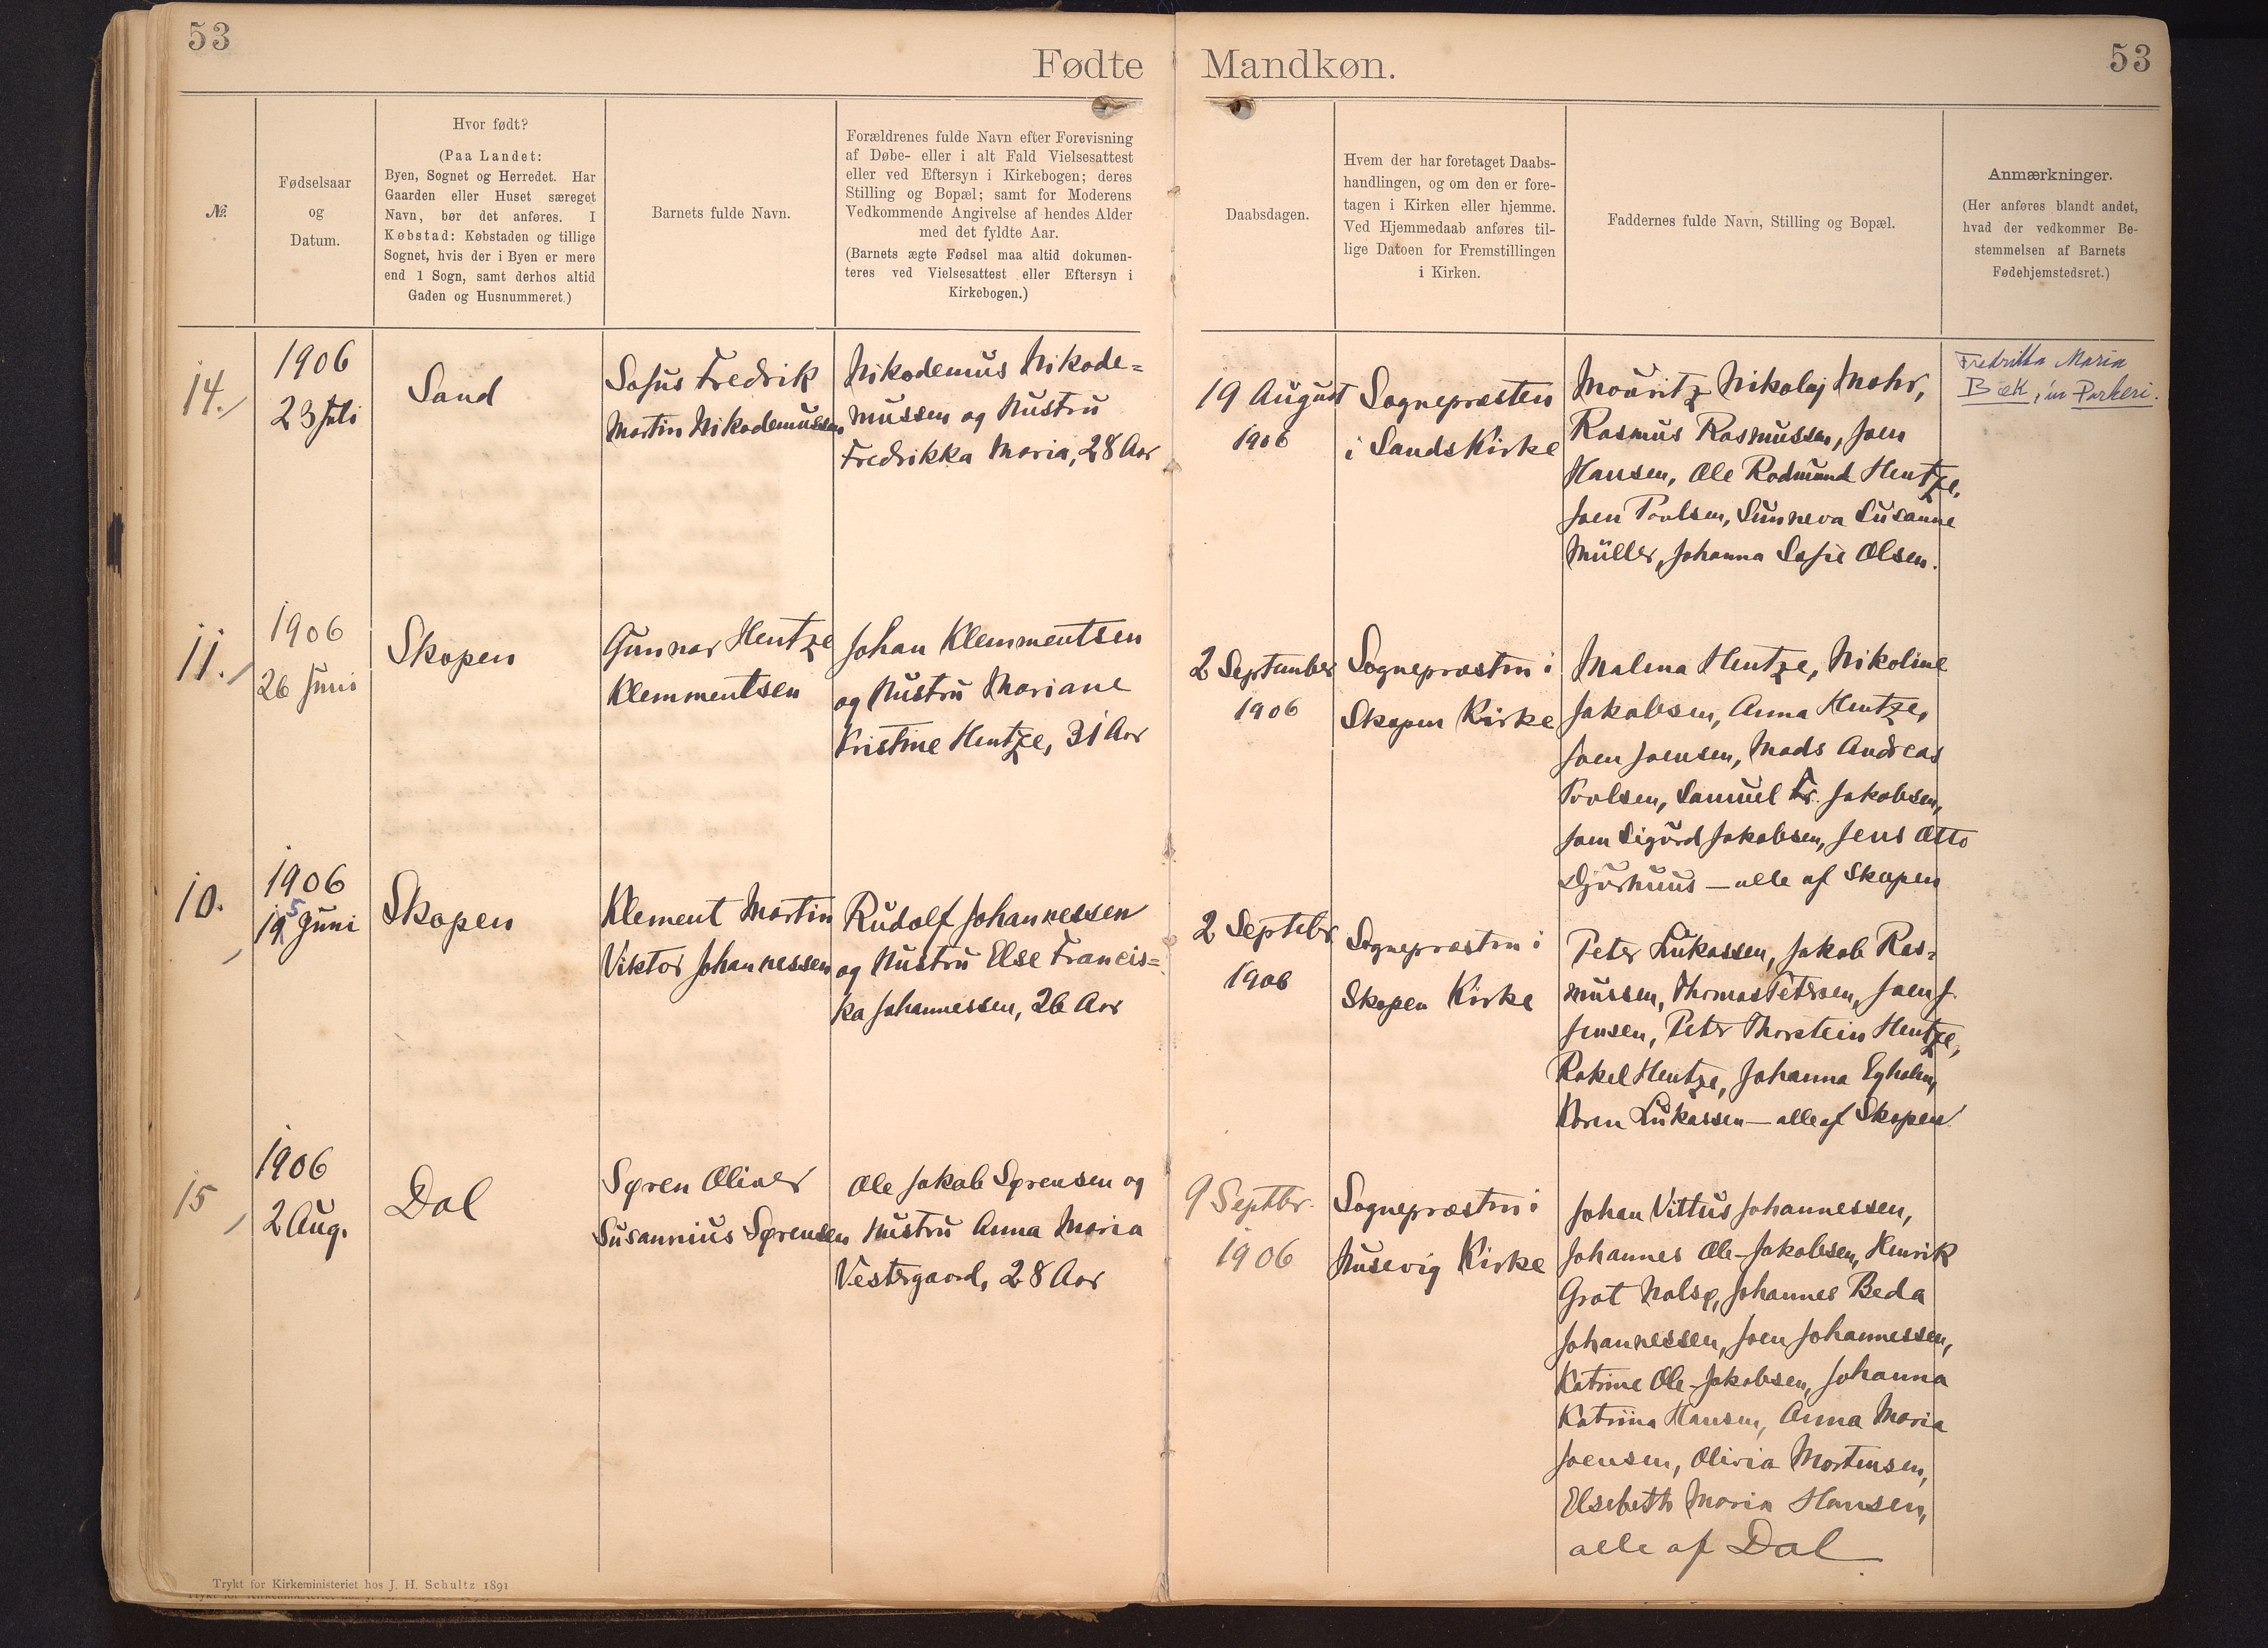 53
Fødte Mandkøn.
53
№.
Fødselsaar
og
Datum.
Hvor født?
(Paa Landet:
Byen, Sognet og Herredet. Har
Gaarden eller Huset særeget
Navn, bør det anføres. I
Købstad: Købstaden og tillige
Sognet, hvis der i Byen er mere
end 1 Sogn, samt derhos altid
Gaden og Husnummeret.)
Barnets fulde Navn.
Forældrenes fulde Navn efter Forevisning
af Døbe- eller i alt Fald Vielsesattest
eller ved Eftersyn i Kirkebogen; deres
Stilling og Bopæl; samt for Moderens
Vedkommende Angivelse af hendes Alder
med det fyldte Aar.
(Barnets ægte Fødsel maa altid dokumen-
teres ved Vielsesattest eller Eftersyn i
Kirkebogen.)
Daabsdagen.
Hvem der har foretaget Daabs-
handlingen, og om den er fore-
tagen i Kirken eller hjemme.
Ved Hjemmedaab anføres til-
lige Datoen for Fremstillingen
i Kirken.
Faddernes fulde Navn, Stilling og Bopæl.
Anmærkninger.
(Her anføres blandt andet,
hvad der vedkommer Be-
stemmelsen af Barnets
Fødehjemstedsret.)
14.
1906
23 Juli
Sand
Sofus Fredrik
Martin Nikodemussen
Nikodemus Nikode=
mussen og Hustru
Fredrikka Maria, 28 Aar
19 August
1906
Sognepræsten
i Sands Kirke
Mouritz Nikolaj Mohr,
Rasmus Rasmussen, Joen
Hansen, Ole Rodmund Hentze,
Joen Poulsen, Sunneva Susanne
Müller, Johanna Sofie Olsen.
Fredrikka Maria
Bæk,
11.
1906
26 Juni
Skopen
Gunnar Hentze
Klemmentsen
Johan Klemmentsen
og Hustru Mariane
Kristine Hentze, 31 Aar
2 September
1906
Sognepræsten i
Skopen Kirke
Malena Hentze, Nikoline
Jakobsen, Anna Hentze,
Joen Joensen, Mads Andreas
Poulsen, Samuel Fr. Jakobsen,
Joen Sigurd Jakobsen, Jens Otto
Djurhuus — alle af Skopen
10.
1906
15 Juni
Skopen
Klement Martin
Viktor Johannessen
Rudolf Johannessen
og Hustru Else Francis=
ka Johannessen, 26 Aar
2 Septebr
1906
Sognepræsten i
Skopen Kirke
Peter Lukassen, Jakob Ras=
mussen, Thomas Petersen, Joen J.
Jensen, Peter Thorstein Hentze,
Rakel Hentze, Johanna Egholm,
Karen Lukassen — alle af Skopen
15
1906
2 Aug.
Dal
Søren Oliver
Susannius Sørensen
Ole Jakob Sørensen og
Hustru Anna Maria
Vestergaard, 28 Aar
9 Septbr.
1906
Sognepræsten i
Husevig Kirke
Johan Vittus Johannessen,
Johannes Ole-Jakobsen, Henrik
Grot Nolsø, Johannes Beda
Johannessen, Joen Johannessen,
Katrine Ole-Jakobsen, Johanna
Katrina Hansen, Anna Maria
Joensen, Olivia Mortensen,
Elsebeth Maria Hansen,
alle af Dal
Trykt for Kirkeministeriet hos J. H. Schultz 1891